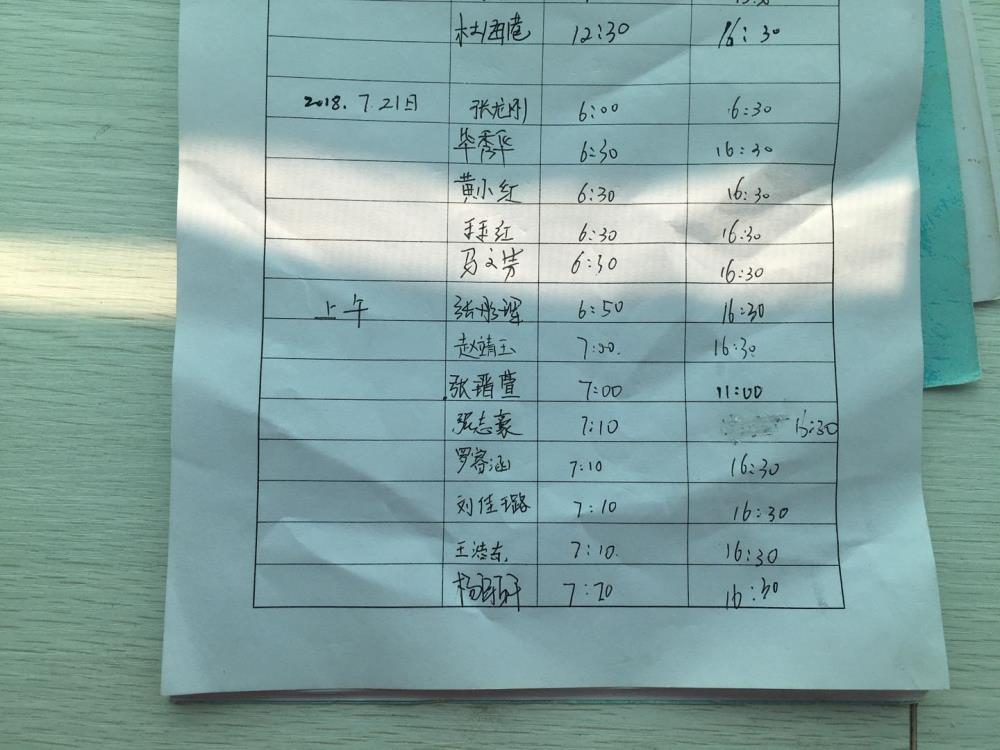 杜雨港 12:30 16:30
2018.7.21日 张龙刚 6:00 16:30
毕秀华 6:30 16:30
黄小红 6:30 16:30
红 6:30 16:30
马文芳 6:30 16:30
上午 张彤辉 6:50 16:30
赵靖玉 7:00. 16:30
张晋萱 7:00 11:00
张志豪 7:10 15:30
罗睿涵 7:10 16:30
刘佳璐 7:10 16:30
王浩东 7:10. 16:30
杨 7:20 16:30